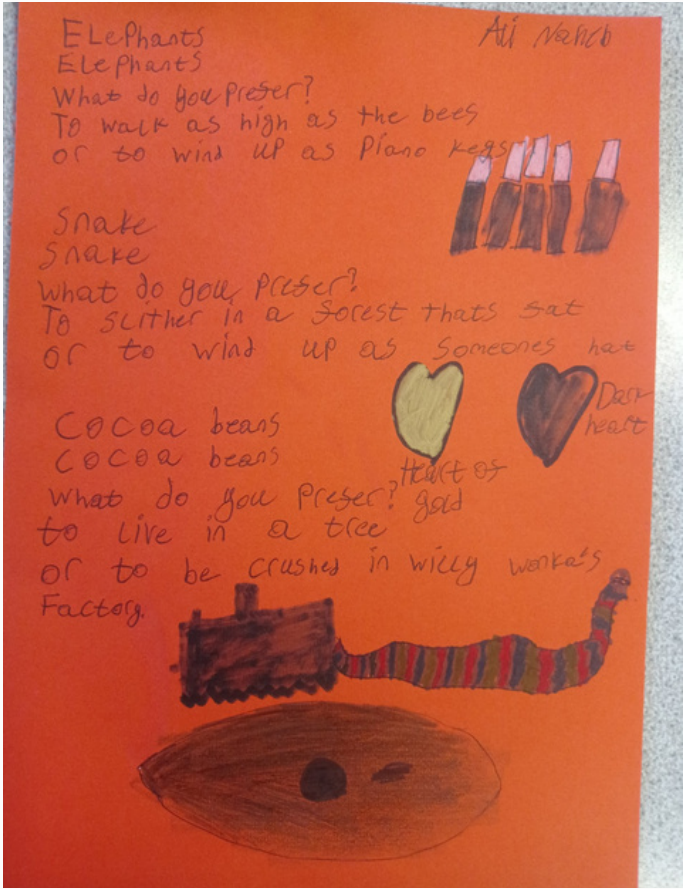 Ali
ELePhants
ELePhants
What do you Prefer?
To walk as high as the bees
or to wind up as Piano keys
Snake
Snake
What do you Prefer?
To slither in a forest thats fat
or to wind up as someones hat
Dark
heart
Cocoa beans
Cocoa beans
Heart of
gold
What do you Prefer?
to live in a tree
or to be crushed in willy wonka's
Factory.